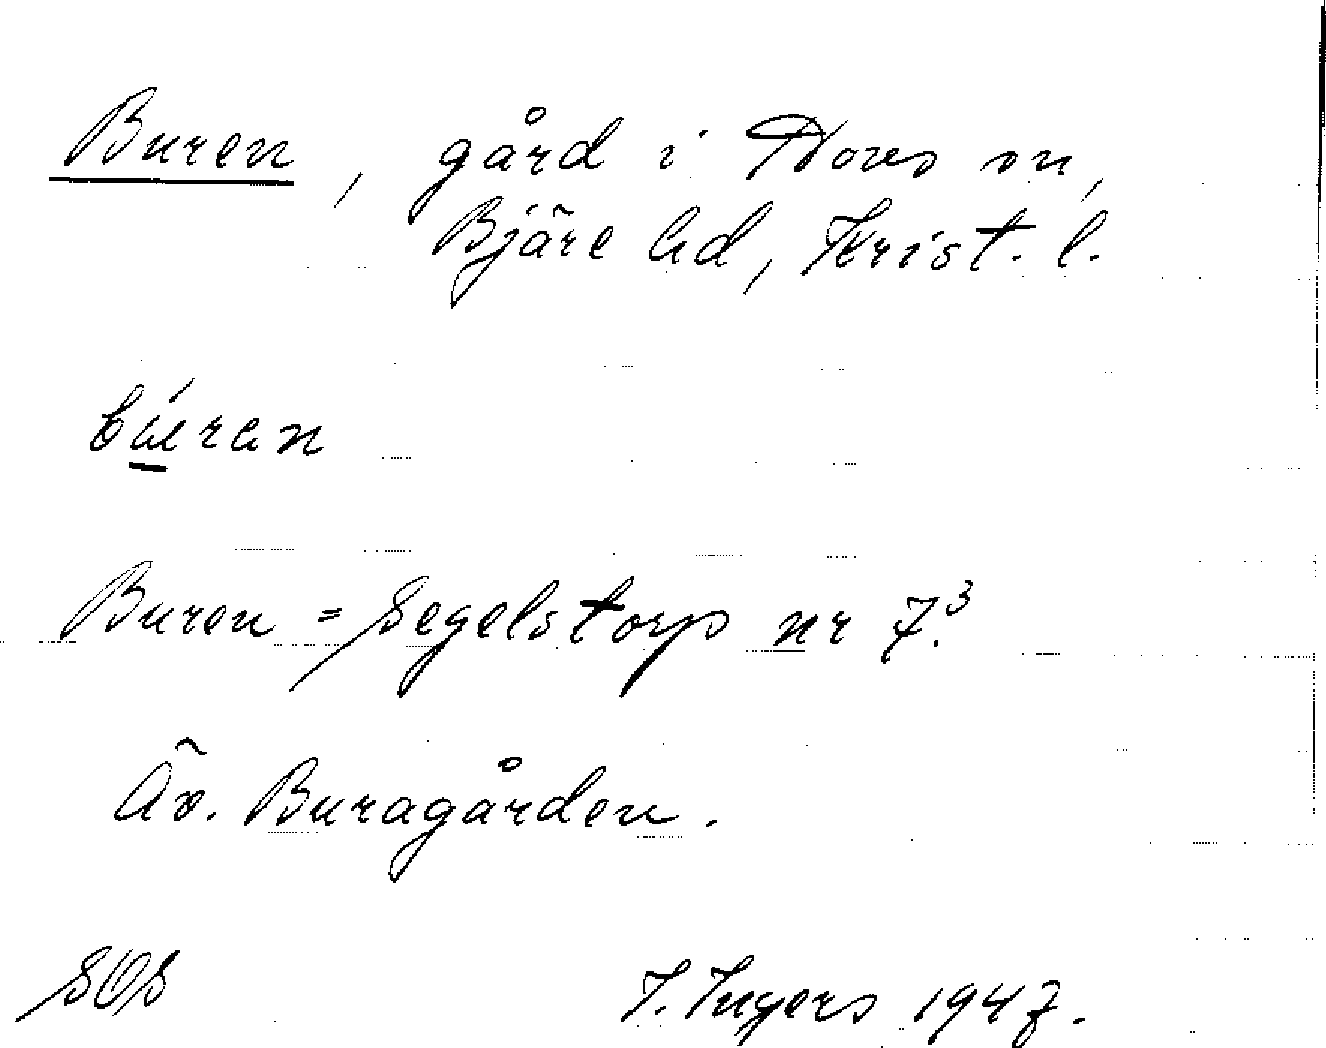 Buren, gård i Hovs sn,
Bjäre hd, Krist. l.
búran
Buren = Segelstorp nr 7.³
Äv. Buragården.
SOS I. Ingers 1947.